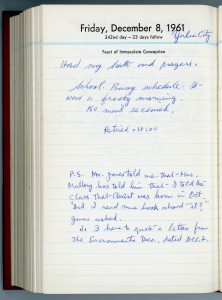 Friday, December 8, 1961
342nd day – 23 days follow
Yuba City
Feast of Immaculate Conception
Had my bath and prayers.
School. Busy schedule. It
was a frosty morning.
No mail received.
Retired - 10:00
P.S. Mr. Jones told me that Mrs.
Mallory has told him that I told the
class that Christ was born in
"Did I read some book about it?"
Jones asked.
So I have to quote a letter from
the Sacramento Bee, dated Dec. 2.